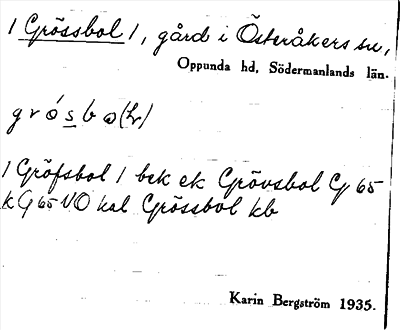 / Grössbol /, gård i Österåkers sn,
Oppunda hd, Södermanlands län.
grósbω(lr)
/ Gröfsbol / bek ek Grövsbol G 65
k G 65 VO kal Grössbol kb
Karin Bergström 1935.